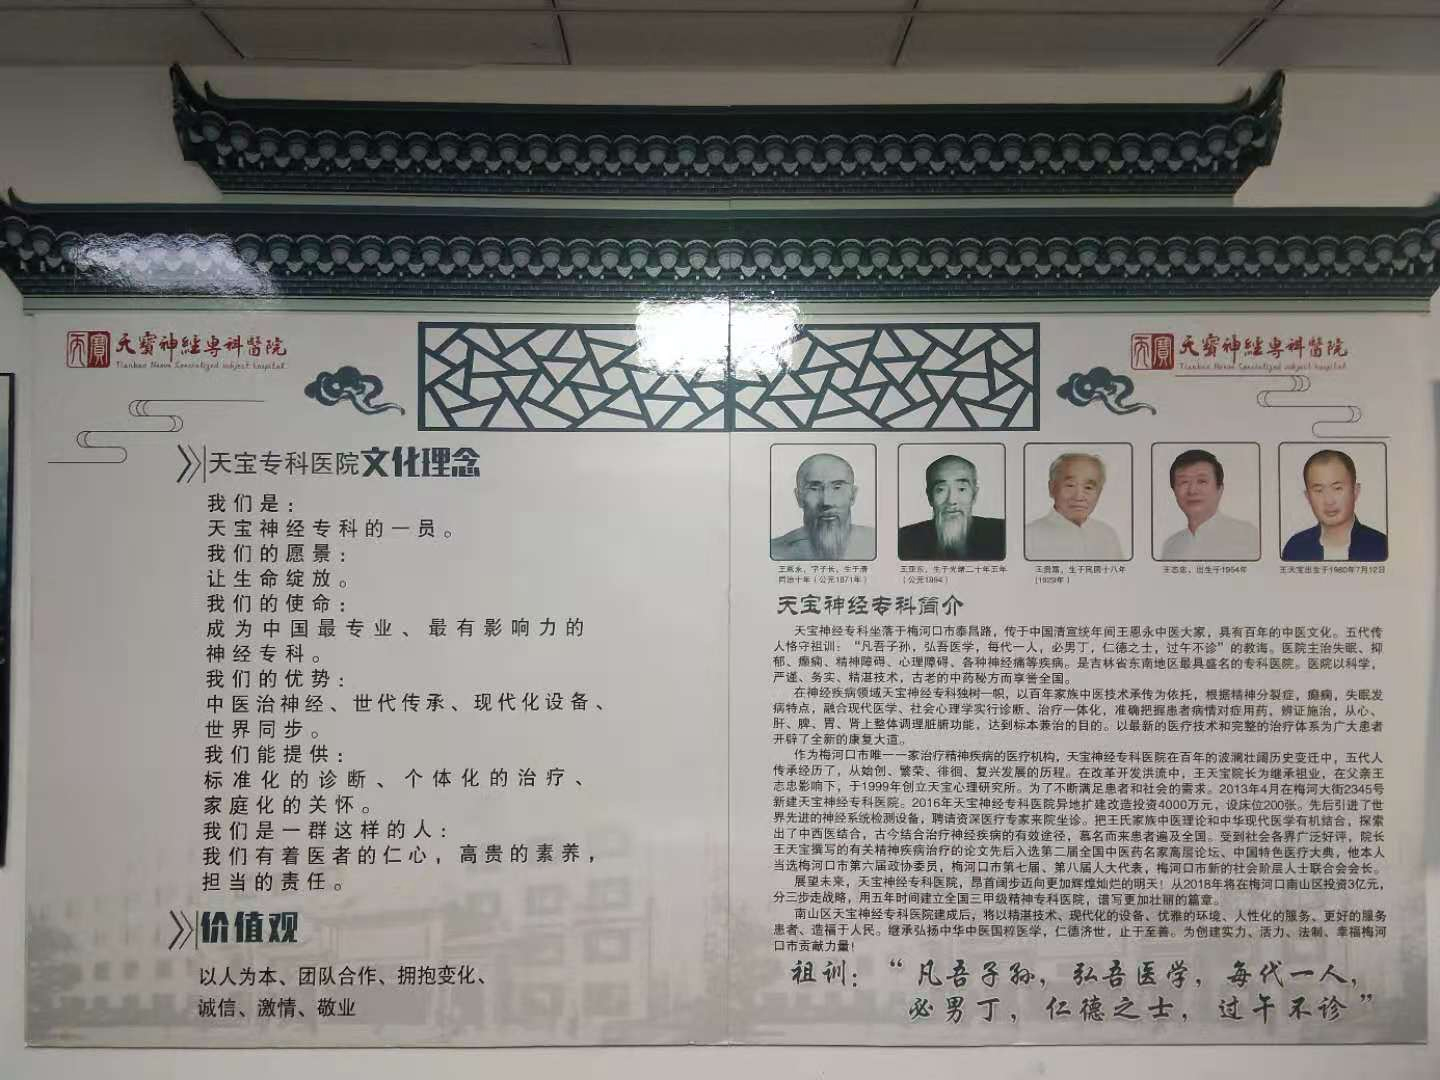 天寶神經專科醫院
Tianbao Nerve Specialized subject hospital
天寶神經專科醫院
Tianbao Nerve Specialized subject hospital
天宝专科医院文化理念
我们是：
天宝神经专科的一员。
我们的愿景：
让生命绽放。
我们的使命：
成为中国最专业、最有影响力的
神经专科。
我们的优势：
中医治神经、世代传承、现代化设备、
世界同步。
我们能提供：
标准化的诊断、个体化的治疗、
家庭化的关怀。
我们是一群这样的人：
我们有着医者的仁心，高贵的素养，
担当的责任。
价值观
以人为本、团队合作、拥抱变化、
诚信、激情、敬业
王恩永，字子长，生于清
同治十年（公元1871年）
生于光绪二十年五年
（公元1894）
生于民国十八年
（1929年）
王志忠，出生于1954年
王天宝出生于1980年7月12日
天宝神经专科简介
天宝神经专科坐落于梅河口市泰昌路，传于中国清宣统年间王恩永中医大家，具有百年的中医文化。五代传
人恪守祖训：“凡吾子孙，弘吾医学，每代一人，必男丁，仁德之士，过午不诊”的教诲。医院主治失眠、抑
郁、癫痫、精神障碍、心理障碍、各种神经痛等疾病。是吉林省东南地区最具盛名的专科医院。医院以科学，
严谨、务实、精湛技术，古老的中药秘方而享誉全国。
在神经疾病领域天宝神经专科独树一帜，以百年家族中医技术承传为依托，根据精神分裂症，癫痫，失眠发
病特点，融合现代医学、社会心理学实行诊断、治疗一体化，准确把握患者病情对症用药，辨证施治，从心、
肝、脾、胃、肾上整体调理脏腑功能，达到标本兼治的目的。以最新的医疗技术和完整的治疗体系为广大患者
开辟了全新的康复大道。
作为梅河口市唯一一家治疗精神疾病的医疗机构，天宝神经专科医院在百年的波澜壮阔历史变迁中，五代人
传承经历了，从始创、繁荣、徘徊、复兴发展的历程。在改革开放洪流中，王天宝院长为继承祖业，在父亲王
志忠影响下，于1999年创立天宝心理研究所。为了不断满足患者和社会的需求。2013年4月在梅河大街2345号
新建天宝神经专科医院。2016年天宝神经专科医院异地扩建改造投资4000万元，设床位200张。先后引进了世
界先进的神经系统检测设备，聘请资深医疗专家来院坐诊。把王氏家族中医理论和中华现代医学有机结合，探索
出了中西医结合，古今结合治疗神经疾病的有效途径，慕名而来患者遍及全国。受到社会各界广泛好评，院长
王天宝撰写的有关精神疾病治疗的论文先后入选第二届全国中医药名家高层论坛、中国特色医疗大典，他本人
当选梅河口市第六届政协委员，梅河口市第七届、第八届人大代表，梅河口市新的社会阶层人士联合会会长。
展望未来，天宝神经专科医院，昂首阔步迈向更加辉煌灿烂的明天！从2018年将在梅河口南山区投资3亿元，
分三步走战略，用五年时间建立全国三甲级精神专科医院，谱写更加壮丽的篇章。
南山区天宝神经专科医院建成后，将以精湛技术、现代化的设备、优雅的环境、人性化的服务、更好的服务
患者、造福于人民。继承弘扬中华中医国粹医学，仁德济世，止于至善。为创建实力、活力、法制、幸福梅河
口市贡献力量！
祖训：“凡吾子孙，弘吾医学，每代一人，
必男丁，仁德之士，过午不诊”